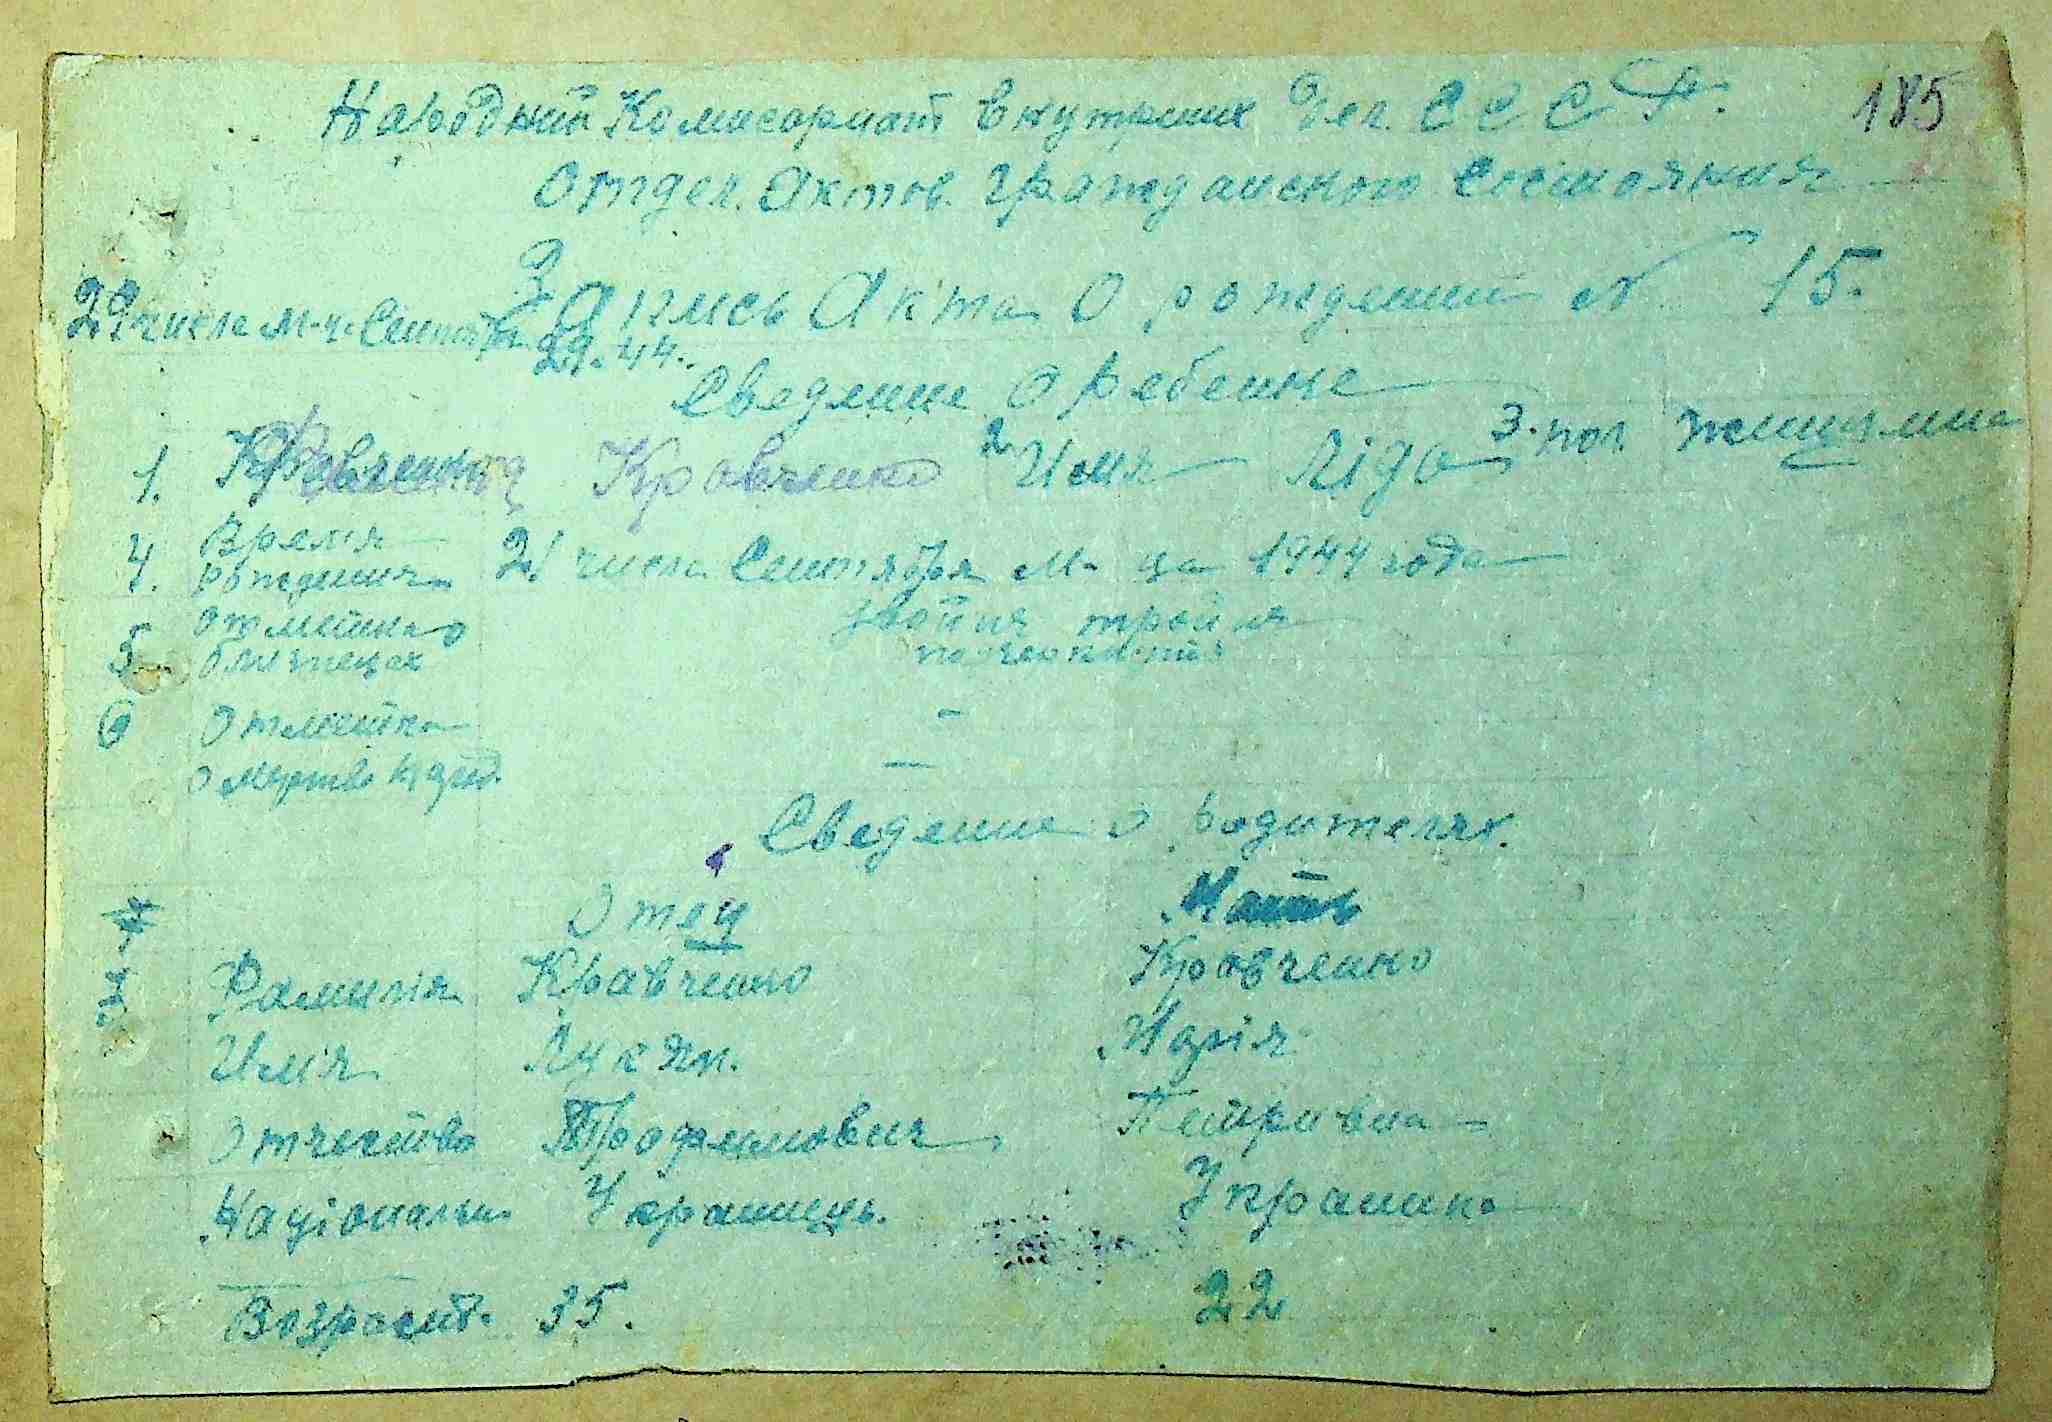 185
Народний Комисариат Внутрених дел. С С С Р.
Отдел. Актов. Гражданского Состояния
Запись Акта О рождении № 15.
29 числа м-ц Сентября
29. 44.
Сведение О Ребенке
1. Кравченко 2 Имя Ліда 3. пол женщина
4. Время рождения 21 числа Сентября м-ца 1944 года
5 Отметка о близнецах двойня тройня
6 Отметка -
о мертво рожд. —
Сведение о родителях.
Отец Мать
7 Фамилия Кравченко Кравченко
Имя Лукян. Марія
Отчество Трофимович Петривна
Національн Украинць. Украинка
Возраст. 35. 22